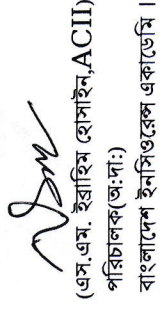 (এস.এম. ইব্রাহিম হোসাইন,ACII)
পরিচালক(অ:দা:)
বাংলাদেশ ইনসিওরেন্স একাডেমি।